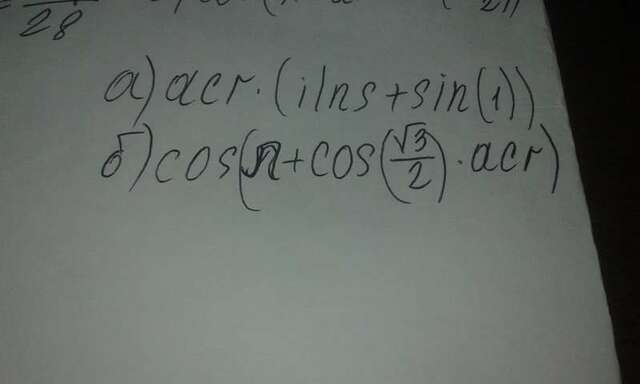 28
а) acr · (ilns + sin(1))
б) cos(π + cos(√3/2) · acr)